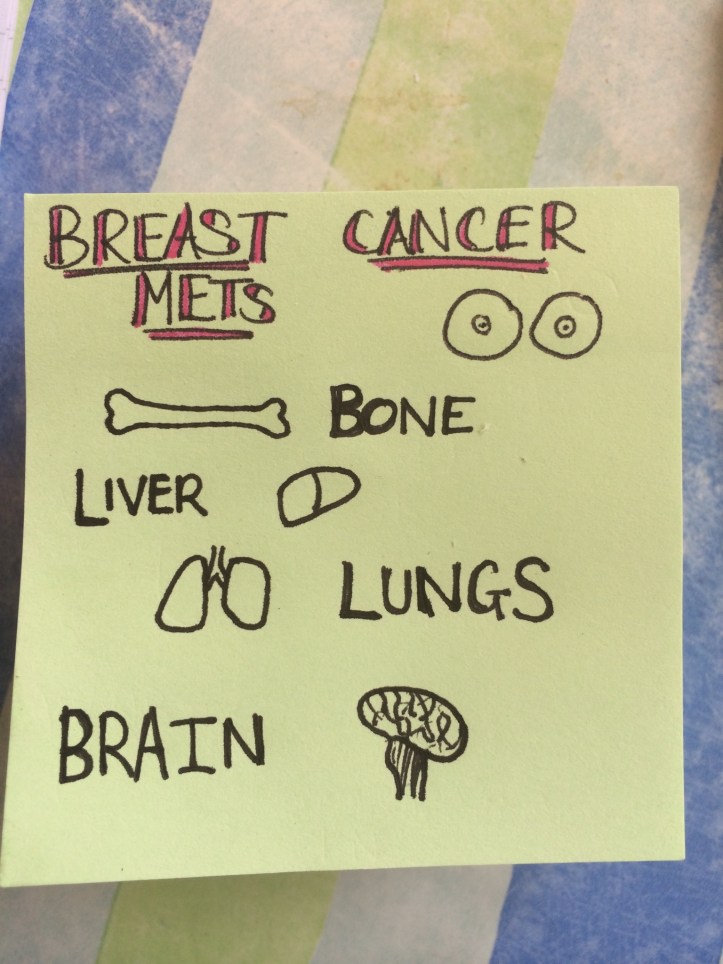 BREAST CANCER
METS
BONE
LIVER
LUNGS
BRAIN